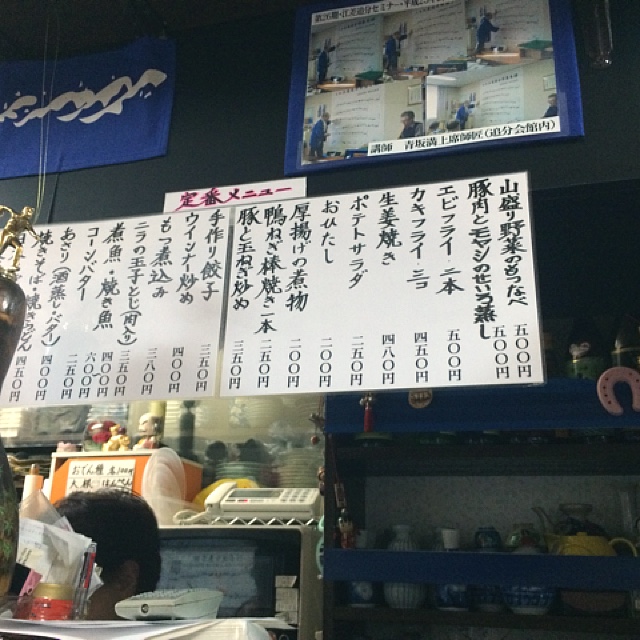 第26期・江差追分セミナー・平成25年
講師 青坂満上席師匠(追分会館内)
定番メニュー
山盛り野菜のもつなべ 五〇〇円
豚肉とモヤシのせいろ蒸し 五〇〇円
エビフライ 二本 五〇〇円
カキフライ 二コ 四五〇円
生姜焼き 四八〇円
ポテトサラダ 二五〇円
おひたし 二〇〇円
厚揚げの煮物 二〇〇円
鴨ねぎ棒焼き一本 二五〇円
豚と玉ねぎ炒め 三五〇円
手作り餃子 三五〇円
ウインナー炒め 四〇〇円
もつ煮込み 三八〇円
ニラの玉子とじ(肉入り) 三五〇円
煮魚・焼き魚 四〇〇円
コーンバター 二五〇円
あさり(酒蒸し・バター) 四〇〇円
焼きそば・焼きうどん 四五〇円
おでん種 各100円
大根 はんぺん